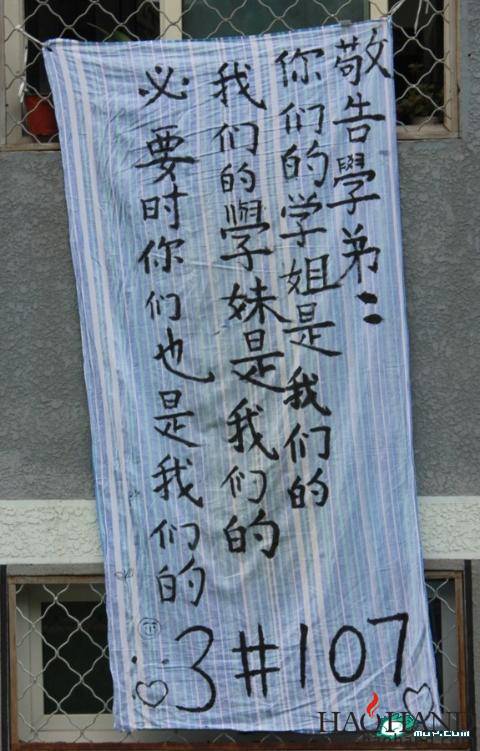 敬告學弟：
你们的学姐是我们的
我们的學妹是我们的
必要时你们也是我们的
3#107
MOP.COM